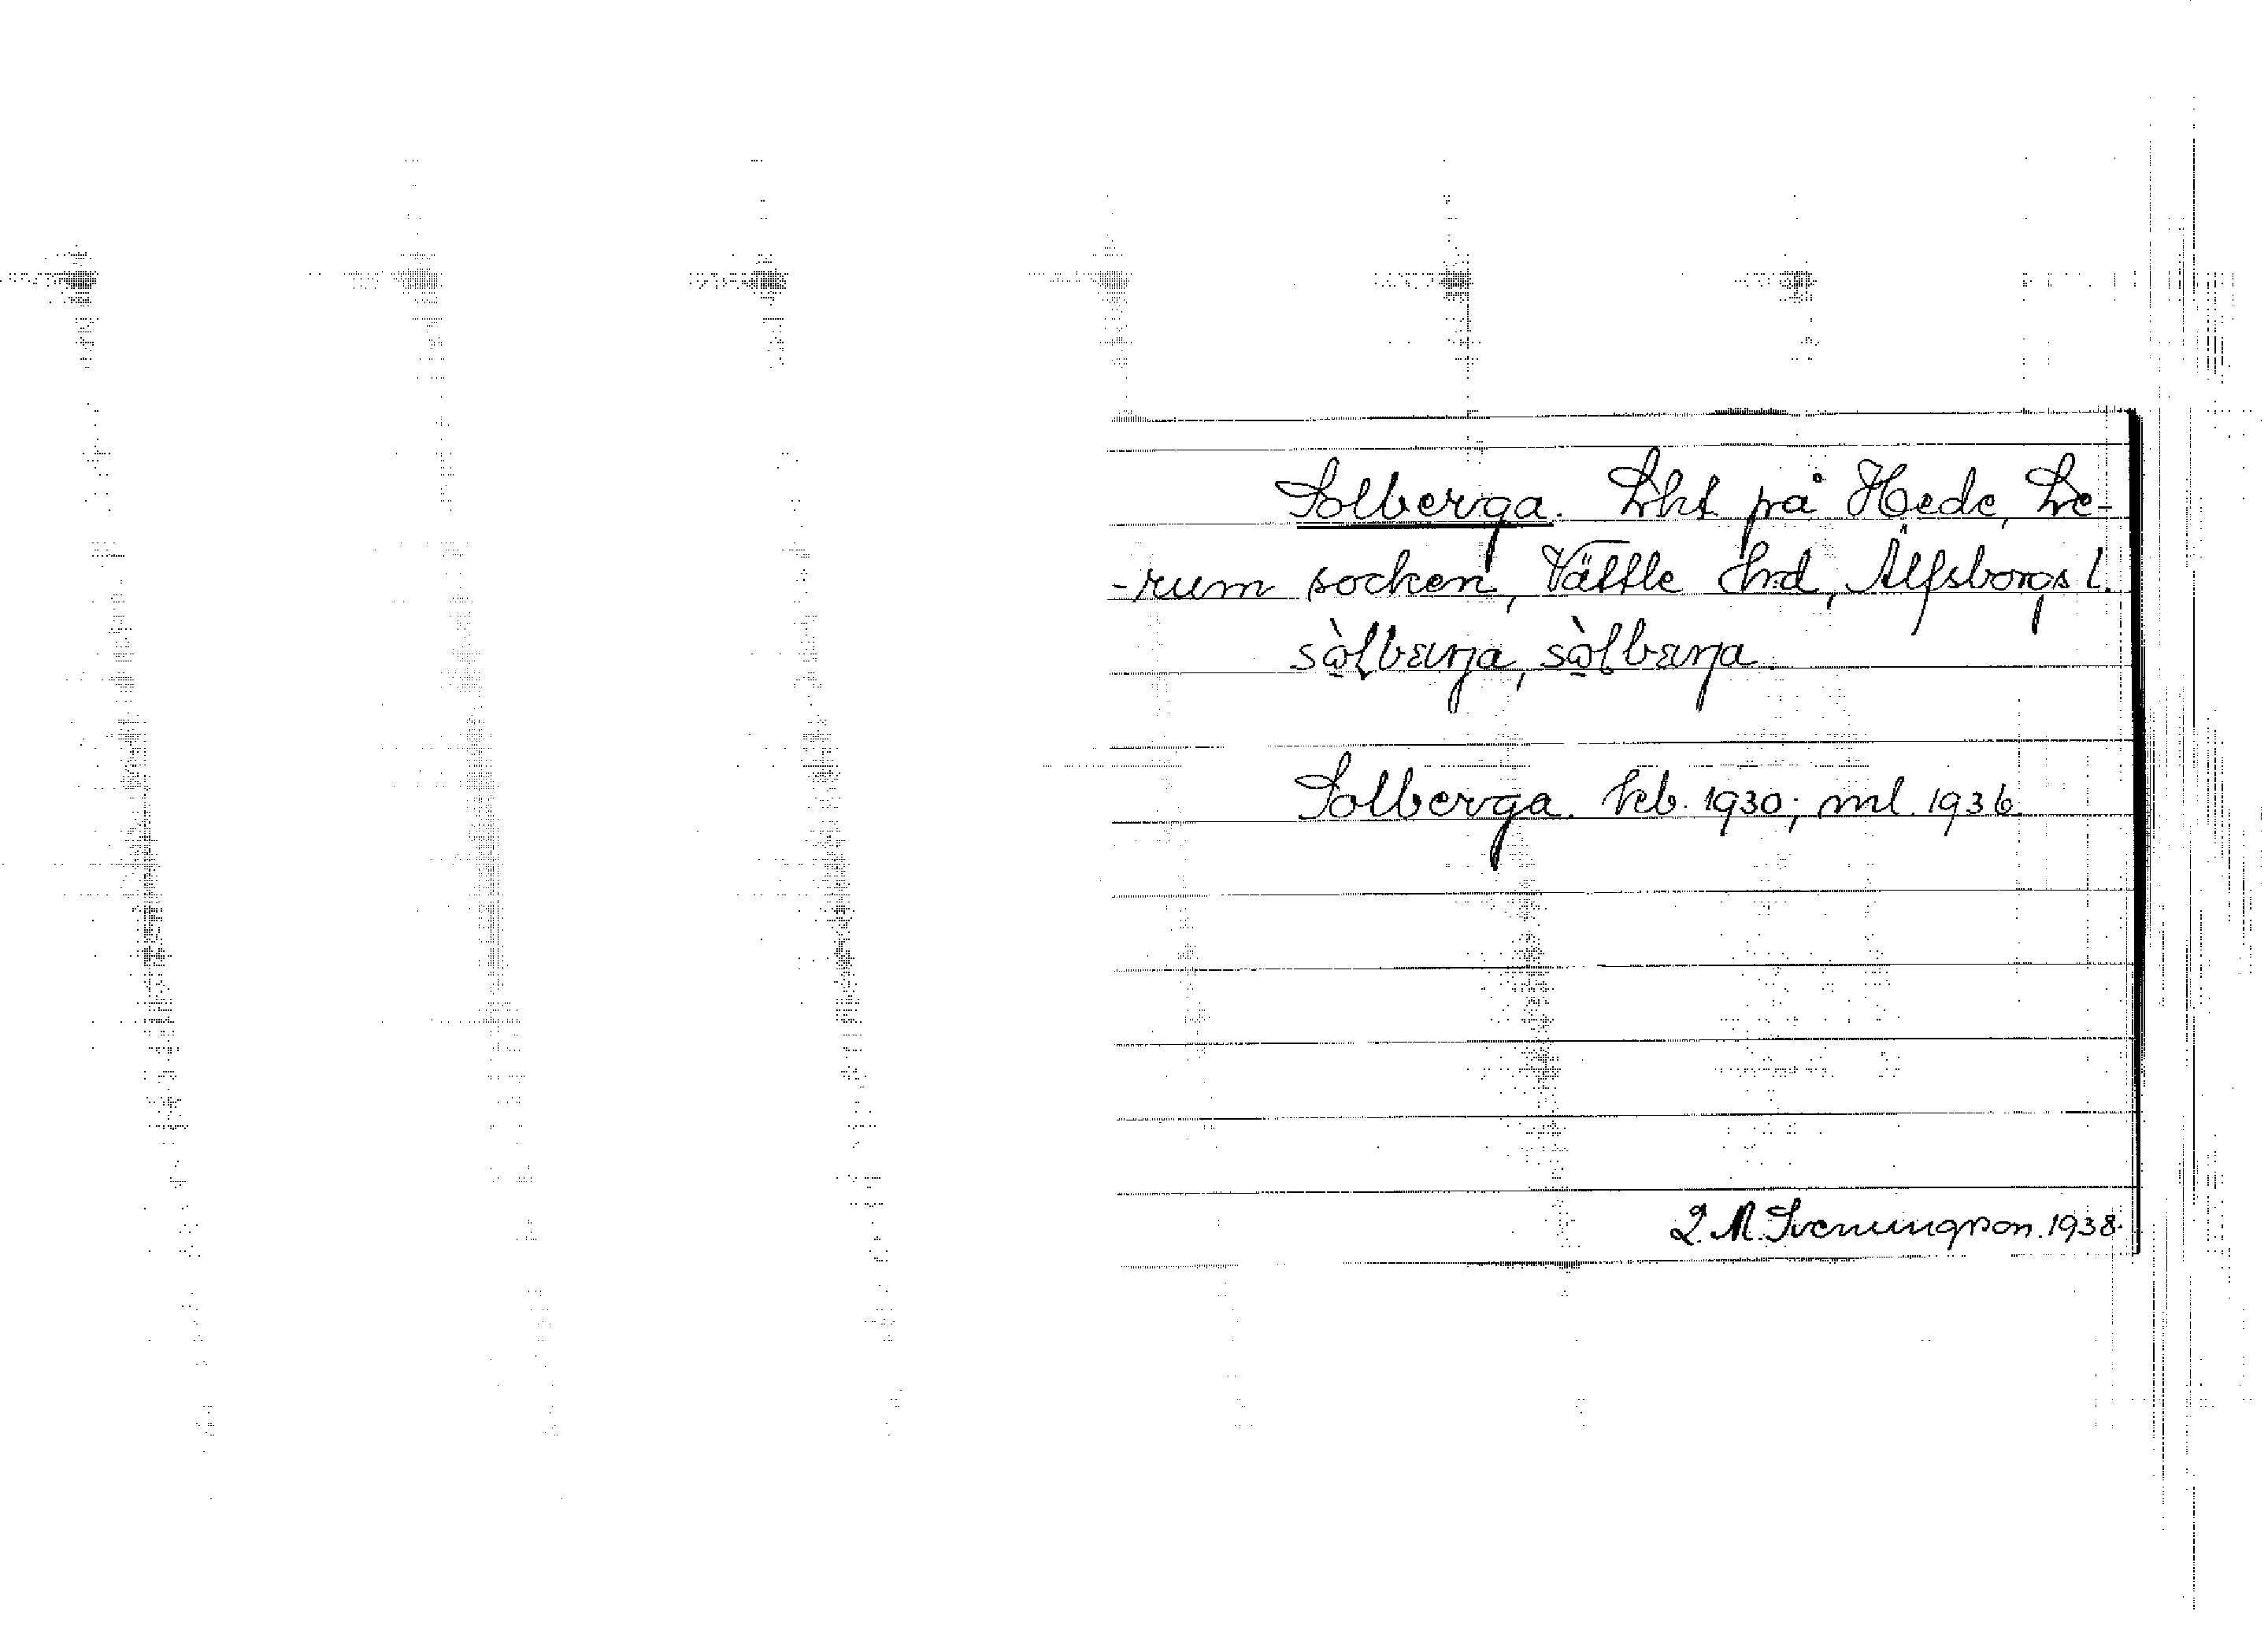 Solberga. Lht på Hede, Le-
-rum socken, Vättle hrd, Älfsborgs l.
sὼlbærja, sὼlbærja
Solberga. Feb. 1930; ml. 1936
L. M. Svenungson. 1938.